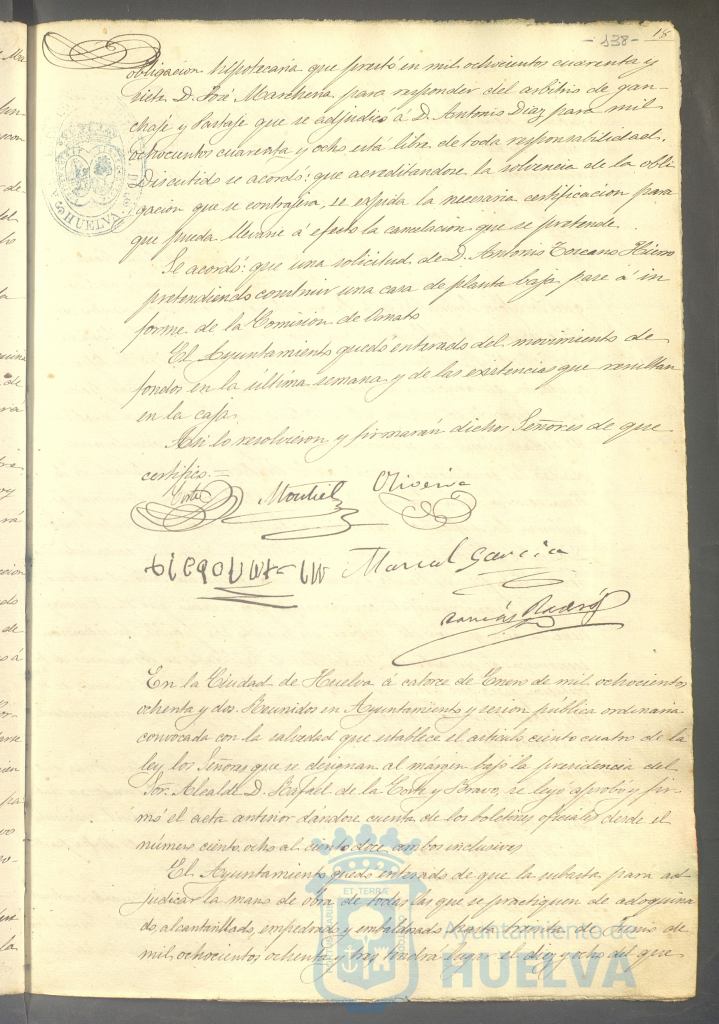 - 138 - 18
obligacion hipotecaria que prestó en mil ochocientos cuarenta y
siete D. José Marchena para responder del arbitrio de gan-
chaje y Portaje que se adjudicó á D. Antonio Diaz para mil
ochocientos cuarenta y ocho está libre de toda responsabilidad.
Discutido se acordó: que acreditandose la solvencia de la obli-
gacion que se contrajera, se expida la necesaria certificacion para
que pueda llevarse á efecto la cancelacion que se pretende.
Se acordó: que una solicitud de D. Antonio Toscano Hierro
pretendiendo construir una casa de planta baja pase á in
forme de la Comision de Ornato
El Ayuntamiento quedó enterado del movimiento de
fondos en la última semana y de las existencias que resultan
en la caja.
Asi lo resolvieron y firmarán dichos Señores de que
certifico.=
Corte Montiel Oliveira
Marcal Garcia
En la Ciudad de Huelva á catorce de Enero de mil ochocientos
ochenta y dos. Reunidos en Ayuntamiento y sesion pública ordinaria
convocada con la salvedad que establece el articulo ciento cuatro de la
ley los Señores que se designan al margen bajo la presidencia del
Sor. Alcalde D. Rafael de la Corte y Bravo, se leyó aprobó y fir-
mó el acta anterior dándose cuenta de los boletines oficiales desde el
número ciento ocho al ciento doce ambos inclusives
El Ayuntamiento quedó enterado de que la subasta para ad-
judicar la mano de obra de todas las que se practiquen de adoquina
do, alcantarillado, empedrado y embaldosado hasta treinta de Junio de
mil ochocientos ochenta y tres tendra lugar el diez y ocho del que
HUELVA
ET TERRÆ
Ayuntamiento de
HUELVA